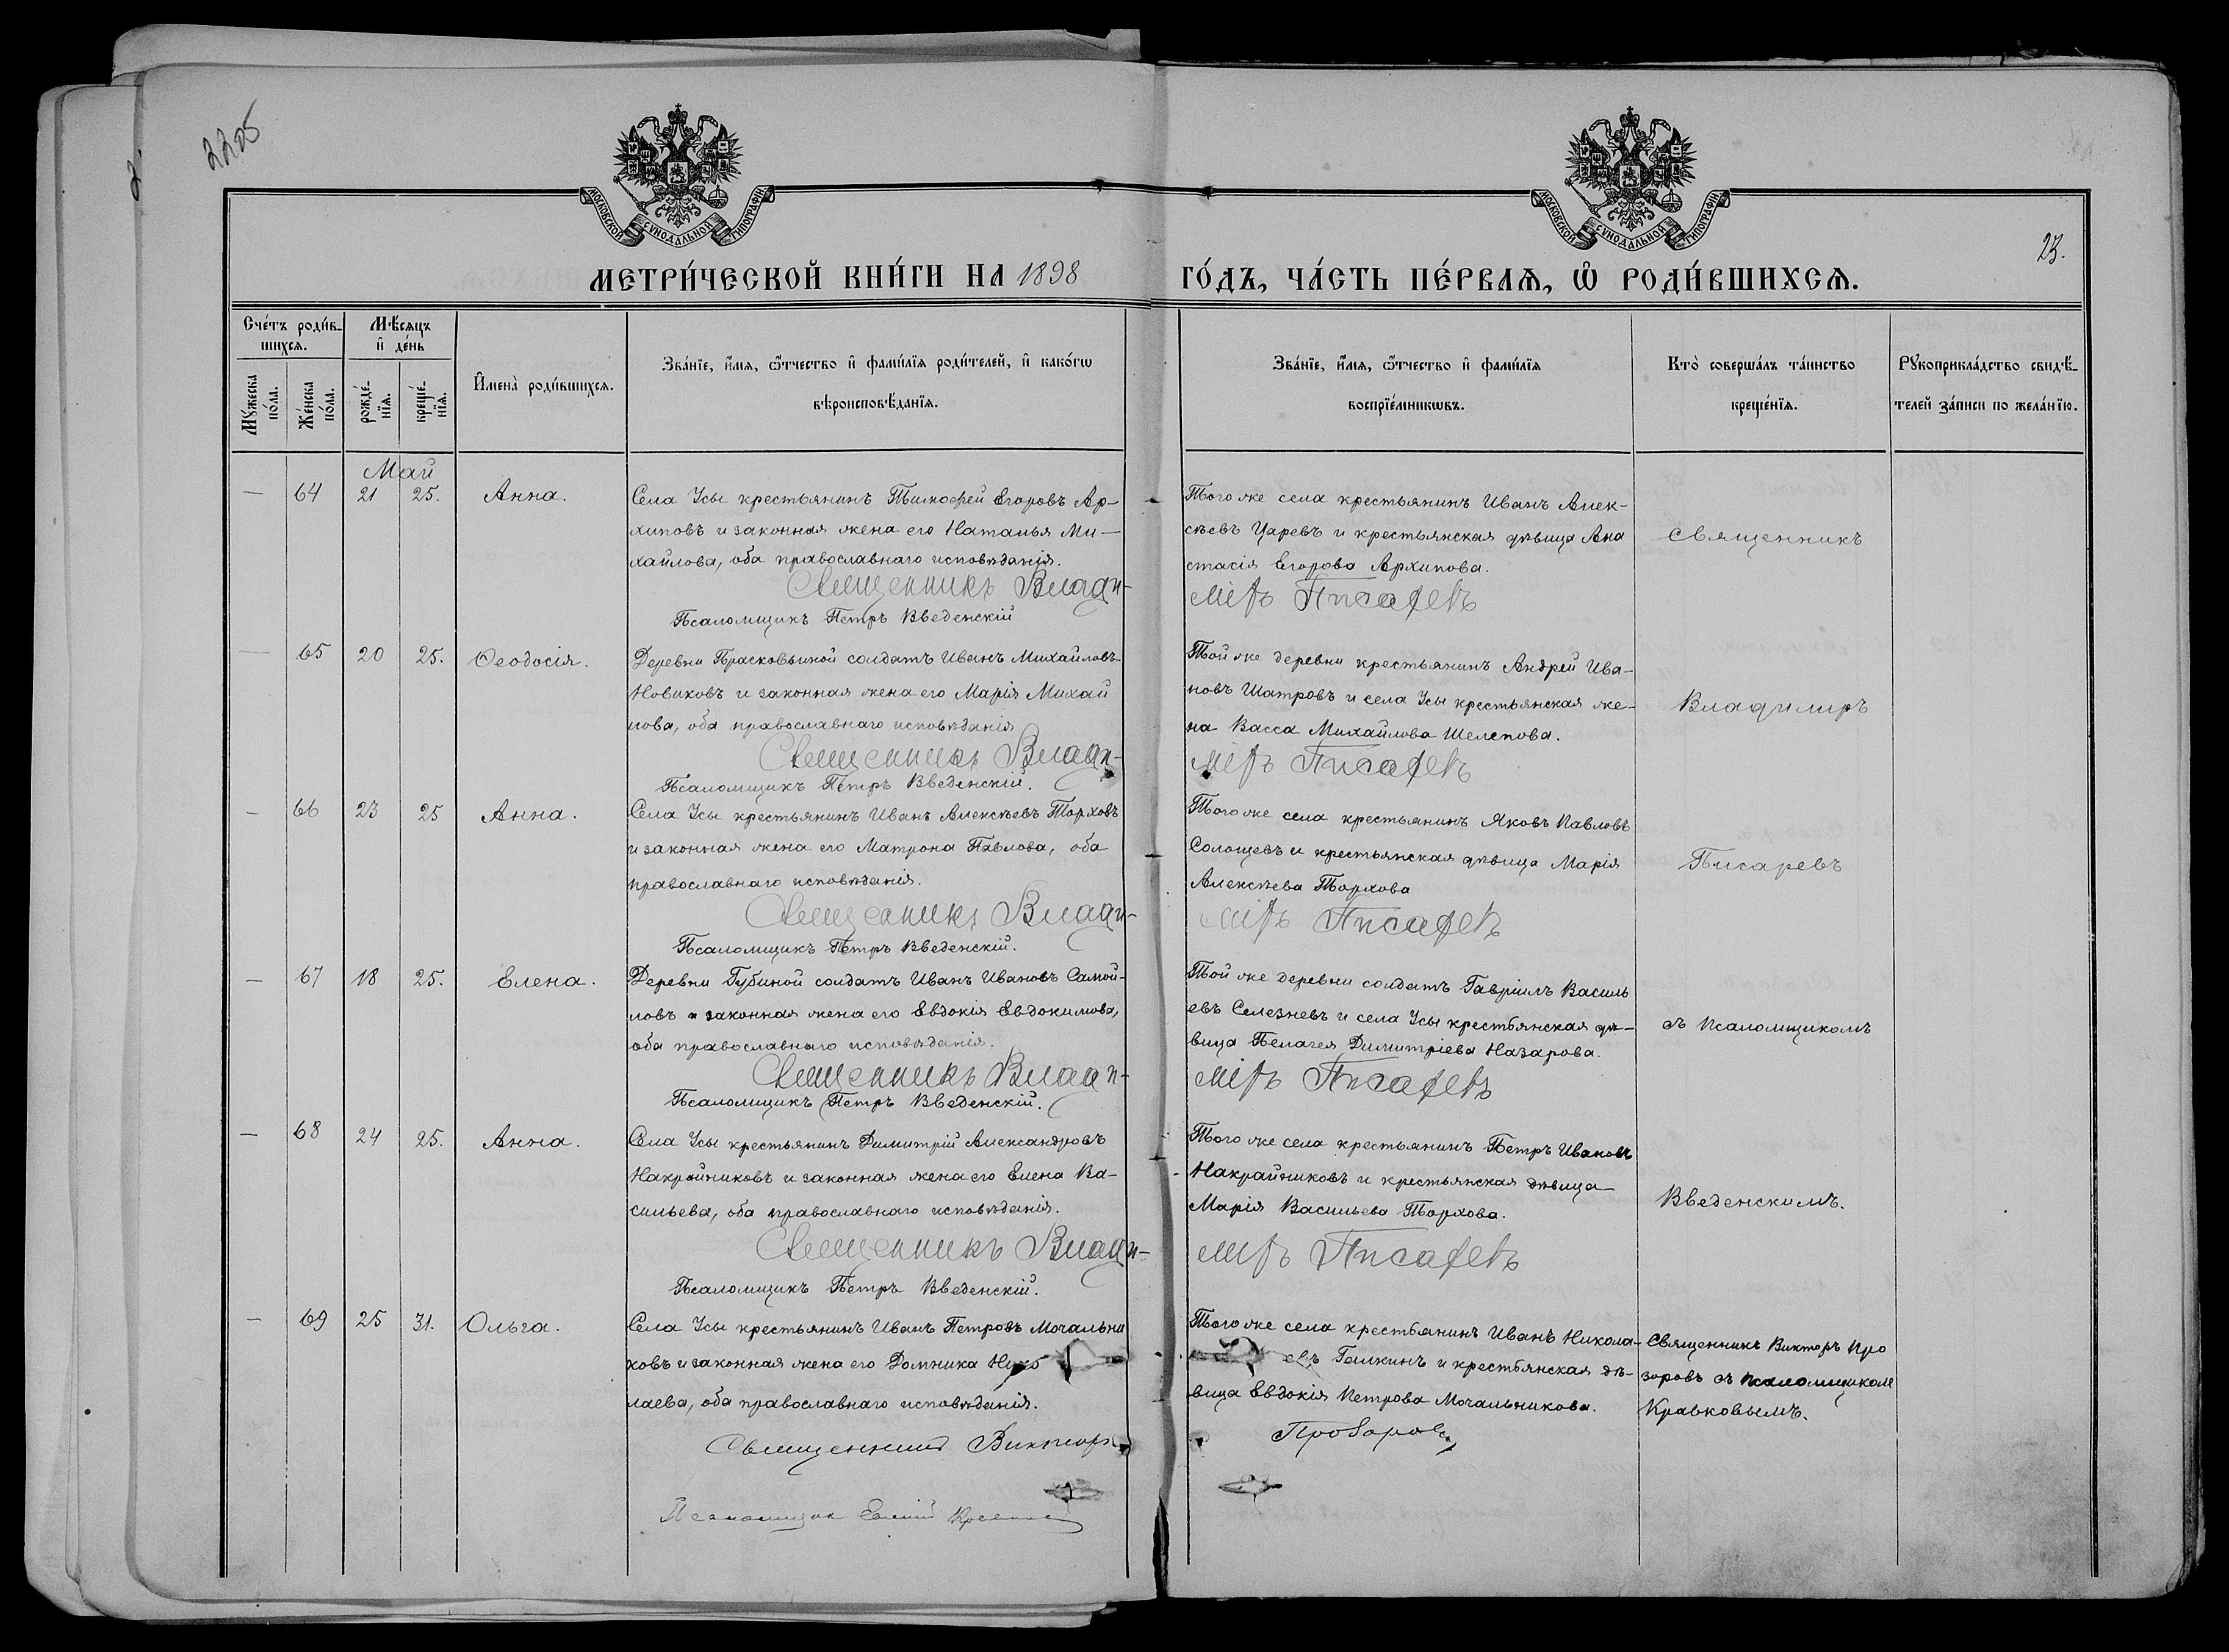 2205
МОСКОВСКОЙ СѴНОДАЛЬНОЙ ТИПОГРАФІИ
МОСКОВСКОЙ СѴНОДАЛЬНОЙ ТИПОГРАФІИ
23.
МЕТРИ́ЧЕСКОЙ КНИ́ГИ НА 1898
ГО́ДЪ, ЧА́СТЬ ПЕ́РВАѦ, Ѡ҆ РОДИ́ВШИХСѦ.
Сче́тъ роди́в-
шихсѧ.
Мꙋ́жеска по́ла.
Же́нска по́ла.
Мѣ́сѧцъ и҆ де́нь
рожде́-нїѧ.
креще́-нїѧ.
И҆мена̀ роди́вшихсѧ.
Зва́нїе, и҆́мѧ, ѻ҆́тчество и҆ фами́лїѧ роди́телей, и҆ како́гѡ
вѣроисповѣ́данїѧ.
Зва́нїе, и҆́мѧ, ѻ҆́тчество и҆ фами́лїѧ
воспрїе́мникѡвъ.
Кто̀ соверша́лъ та́инство
креще́нїѧ.
Рꙋкоприкла́дство свидѣ́-
телей за́писи по жела́нїю.
Май
— 64 21 25. Анна.
Села Усы крестьянинъ Тимофей Егоровъ Ар-
хиповъ и законная жена его Наталья Ми-
хайлова, оба православнаго исповѣданія.
Священникъ Влади-
Псаломщикъ Петръ Введенскій
Того же села крестьянинъ Иванъ Алек-
сѣевъ Царевъ и крестьянская дѣвица Ана
стасія Егорова Архипова.
міръ Писаревъ
Священникъ
— 65 20 25. Ѳеодосія.
Деревни Прасковьиной солдатъ Иванъ Михайловъ
Новиковъ и законная жена его Марія Михай
лова, оба православнаго исповѣданія
Священникъ Влади-
Псаломщикъ Петръ Введенскій.
Той же деревни крестьянинъ Андрей Ива-
новъ Шатровъ и села Усы крестьянская же-
на Васса Михайлова Шелепова.
міръ Писаревъ
Владимиръ
— 66 23 25 Анна.
Села Усы крестьянинъ Иванъ Алексѣевъ Торховъ
и законная жена его Матрона Павлова, оба
православнаго исповѣданія.
Священникъ Влади-
Псаломщикъ Петръ Введенскій.
Того же села крестьянинъ Яковъ Павловъ
Солощевъ и крестьянская дѣвица Марія
Алексѣева Торхова
міръ Писаревъ
Писаревъ
— 67 18 25. Елена.
Деревни Губиной солдатъ Иванъ Ивановъ Самой-
ловъ и законная жена его Евдокія Евдокимова,
оба православнаго исповѣданія.
Священникъ Влади-
Псаломщикъ Петръ Введенскій.
Той же деревни солдатъ Гавріилъ Василь
евъ Селезневъ и села Усы крестьянская дѣ-
вица Пелагея Димитріева Назарова.
міръ Писаревъ
съ псаломщикомъ
— 68 24 25. Анна.
Села Усы крестьянинъ Димитрій Александровъ
Накрайниковъ и законная жена его Елена Ва-
сильева, оба православнаго исповѣданія.
Священникъ Влади-
Псаломщикъ Петръ Введенскій.
Того же села крестьянинъ Петръ Ивановъ
Накрайниковъ и крестьянская дѣвица
Марія Васильева Торхова.
миръ Писаревъ
Введенскимъ.
— 69 25 31. Ольга.
Села Усы крестьянинъ Иванъ Петровъ Мочальни
ковъ и законная жена его Домника Нико
лаева, оба православнаго исповѣданія.
Священникъ Викторъ
Псаломщикъ
Того же села крестьянинъ Иванъ Никола-
евъ Галкинъ и крестьянская дѣ-
вица Евдокія Петрова Мочальникова.
Прозоровъ
Священникъ Викторъ Про
зоровъ съ псаломщиком
Кравковымъ.